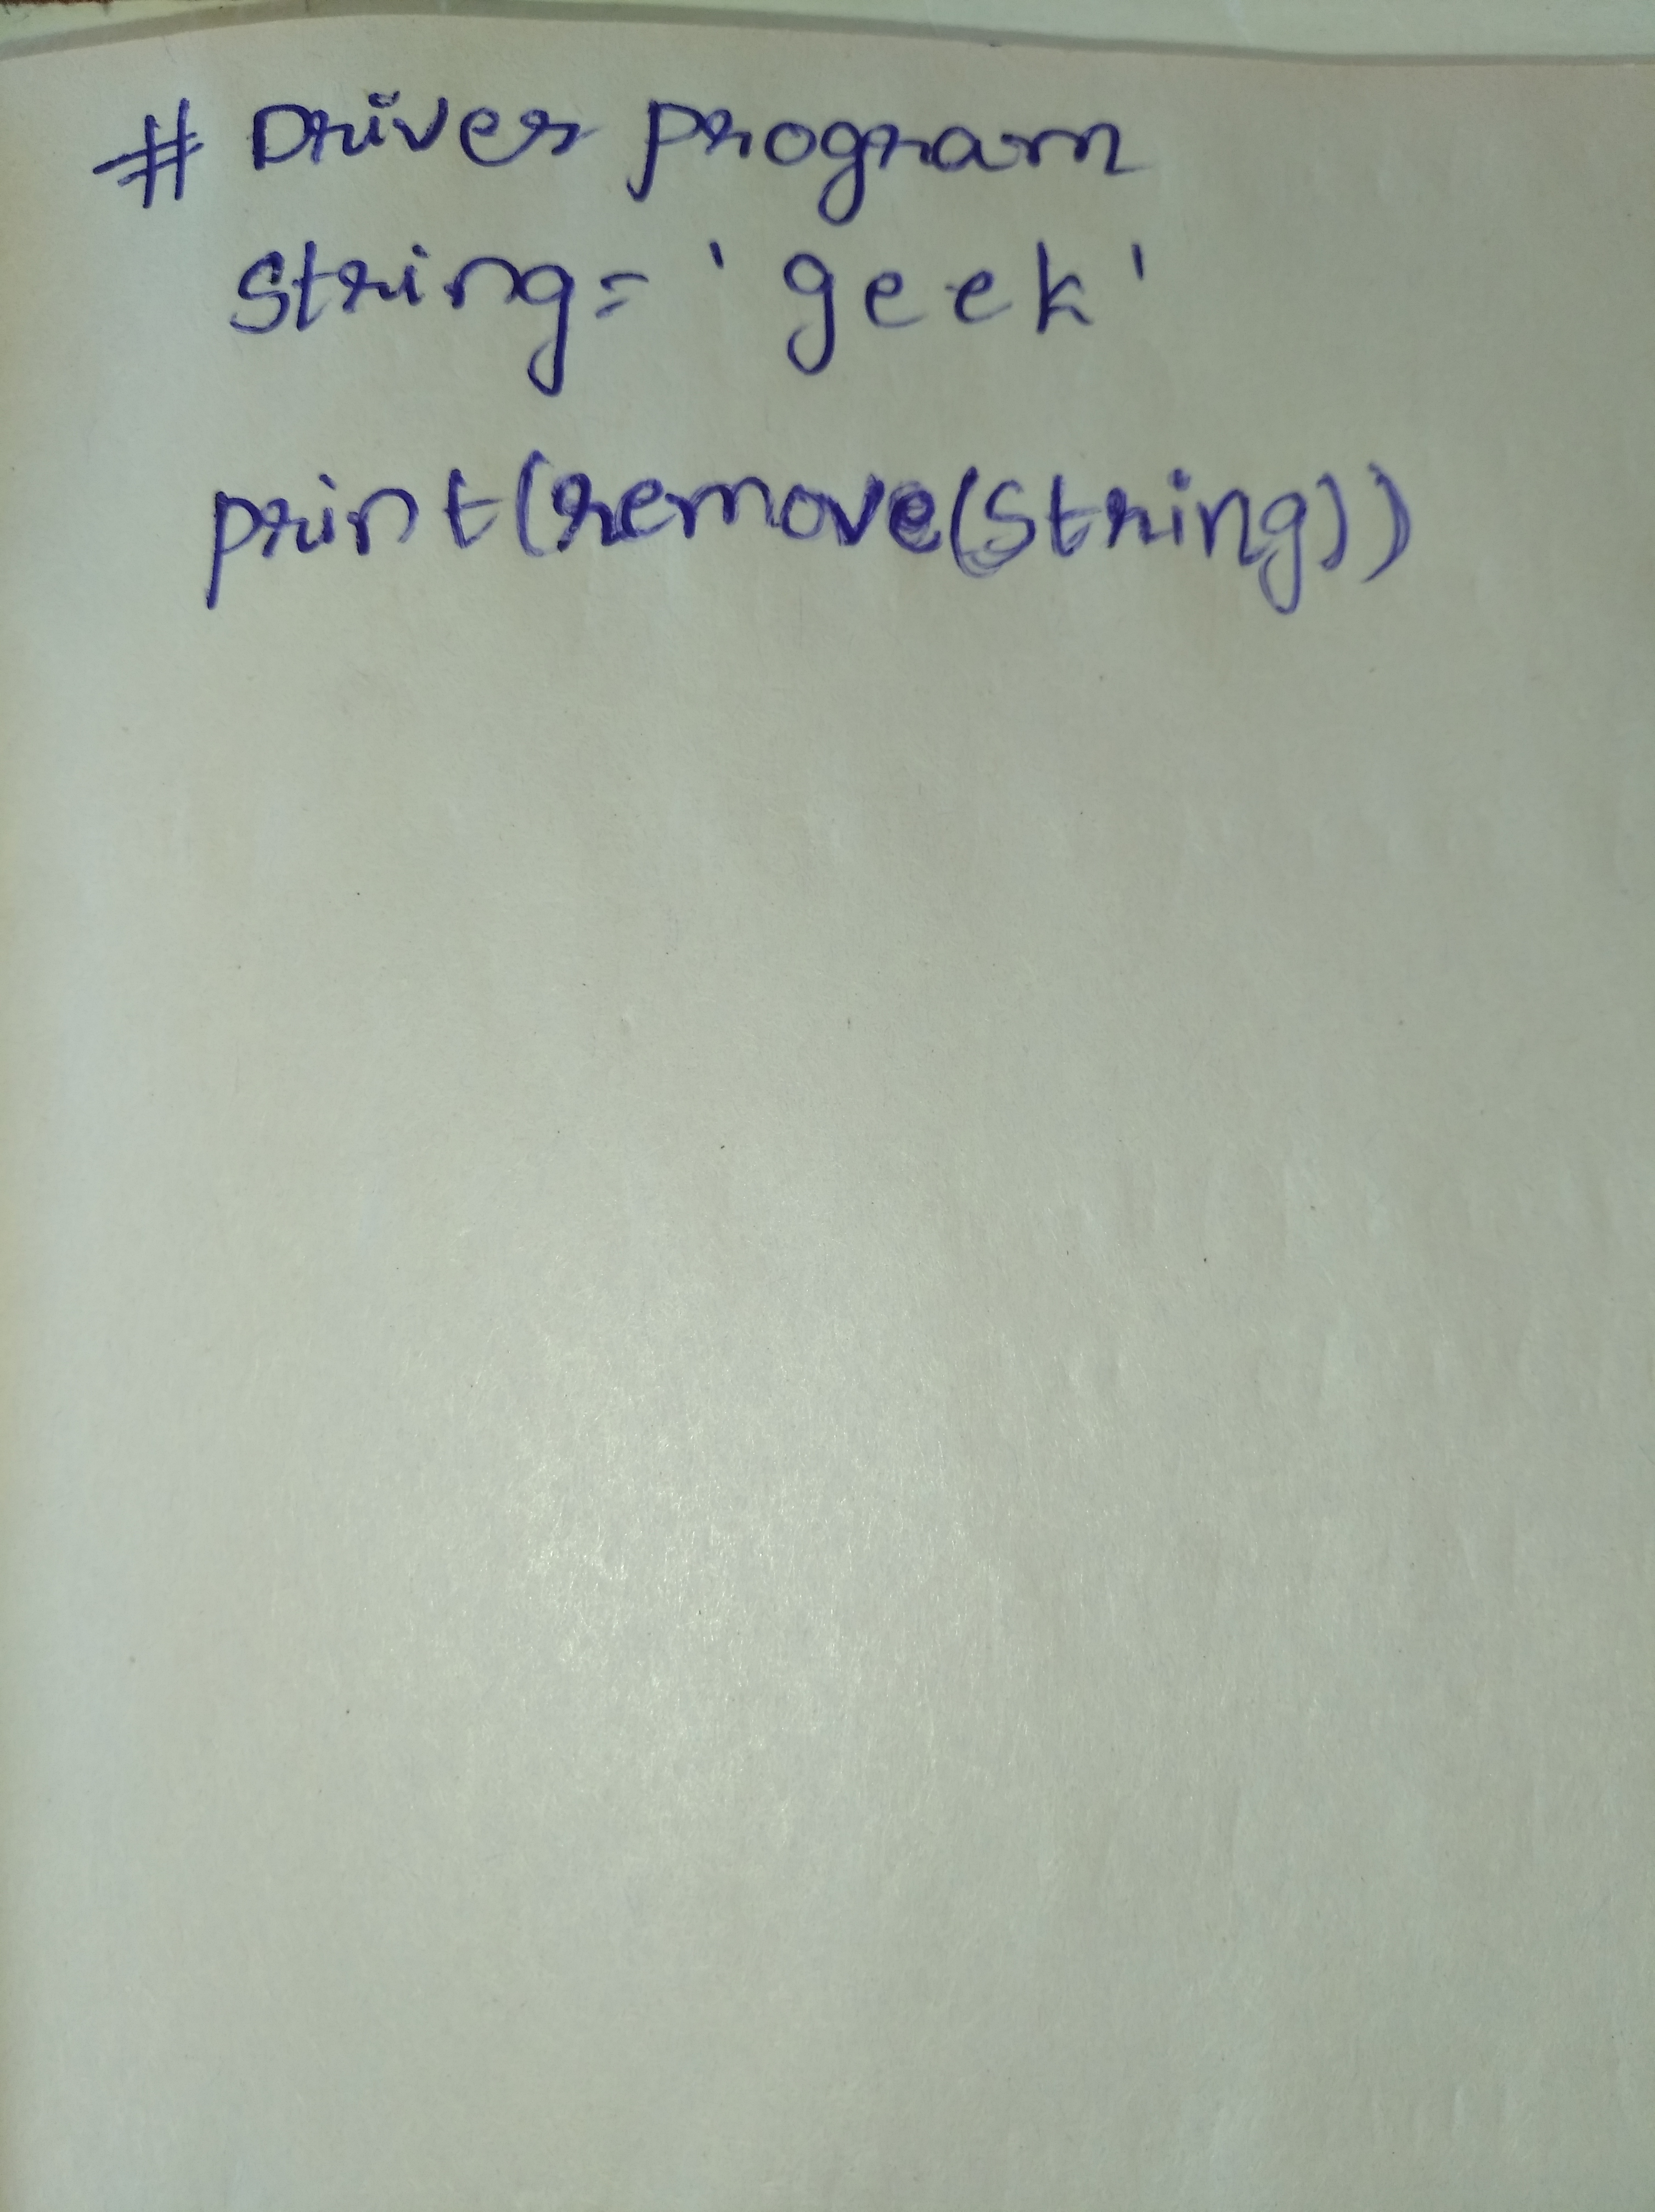 # Driver program
string= ' g e e k '
print(remove(string))